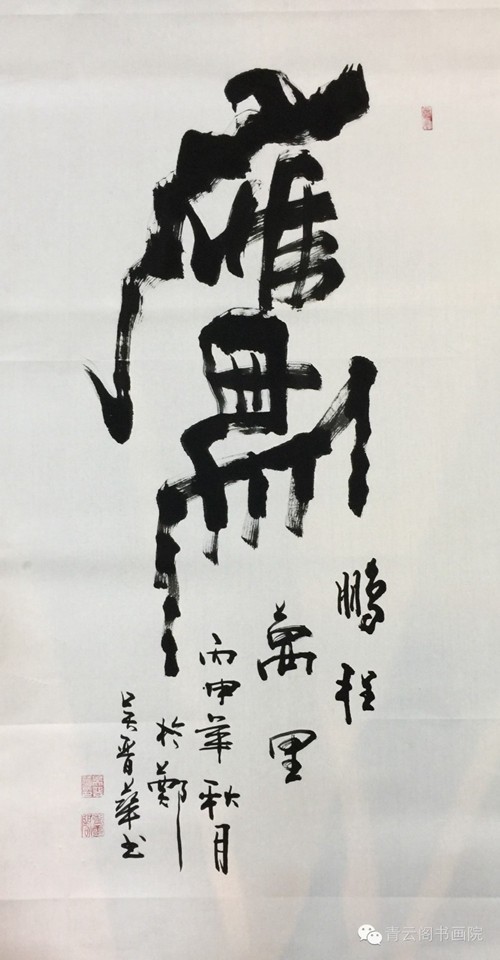 鷹
鵬程
萬里
丙申年秋月
於鄭
吴晋華书
青云阁书画院